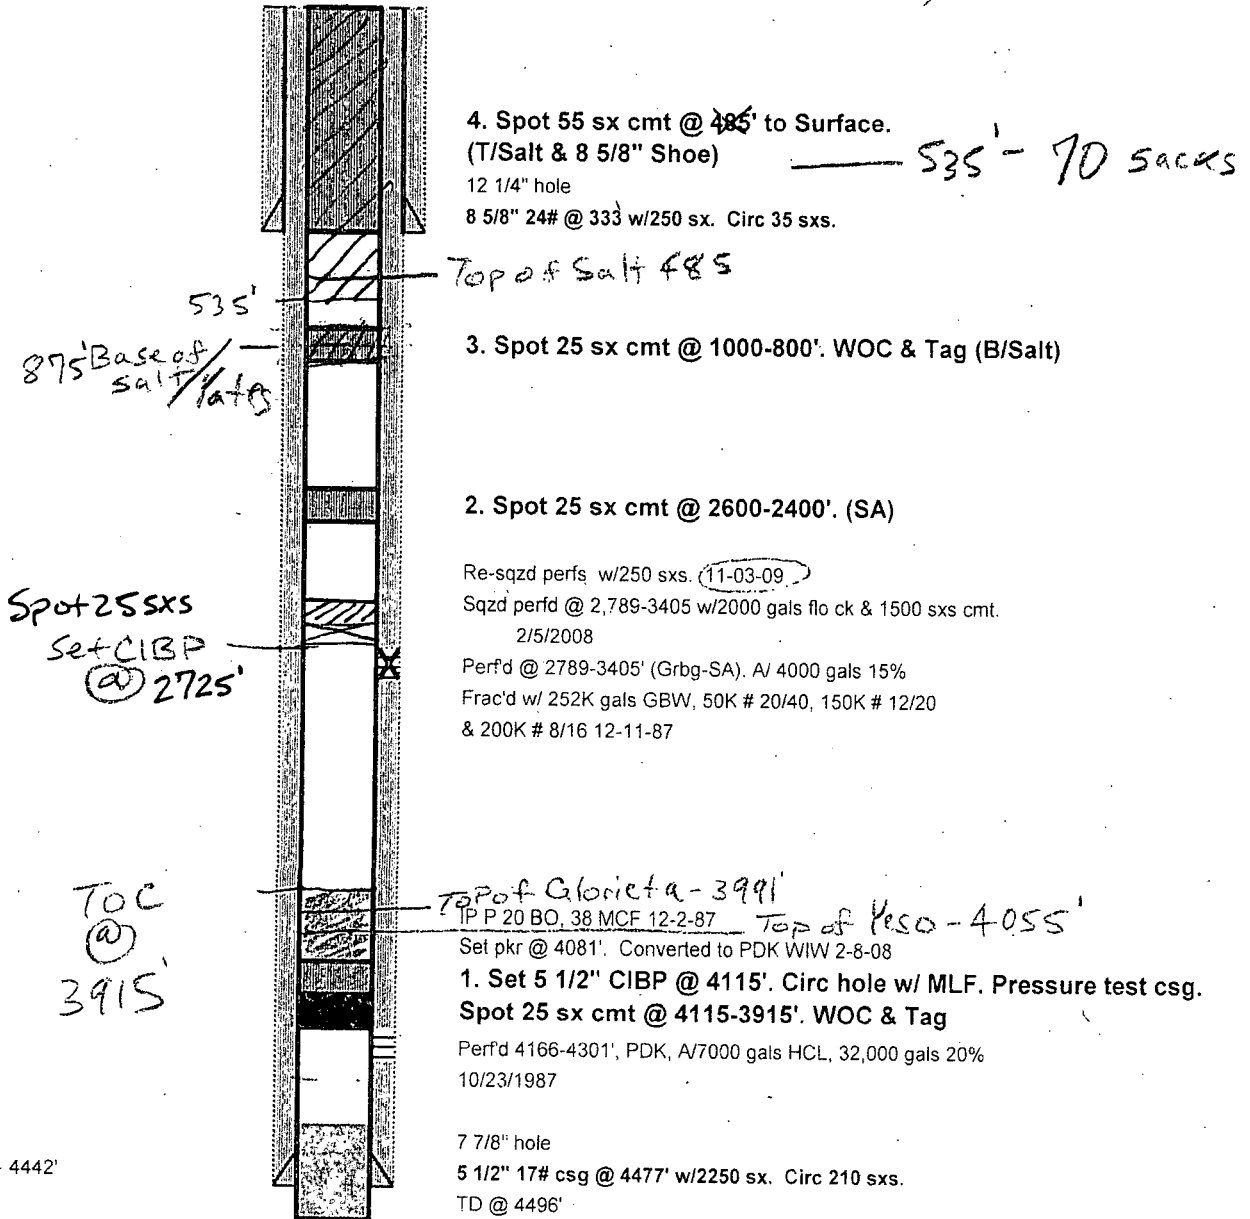 4. Spot 55 sx cmt @ 485' to Surface.
(T/Salt & 8 5/8" Shoe)
535' - 70 sacks
12 1/4" hole
8 5/8" 24# @ 333 w/250 sx. Circ 35 sxs.
Top of Salt 485
535'
875' Base of
salt/Yates
3. Spot 25 sx cmt @ 1000-800'. WOC & Tag (B/Salt)
2. Spot 25 sx cmt @ 2600-2400'. (SA)
Re-sqzd perfs w/250 sxs. 11-03-09
Sqzd perfd @ 2,789-3405 w/2000 gals flo ck & 1500 sxs cmt.
2/5/2008
Spot 25 sxs
Set CIBP
@ 2725'
Perf'd @ 2789-3405' (Grbg-SA). A/ 4000 gals 15%
Frac'd w/ 252K gals GBW, 50K # 20/40, 150K # 12/20
& 200K # 8/16 12-11-87
TOC
@
3915'
Top of Glorieta - 3991'
IP P 20 BO, 38 MCF 12-2-87
Top of Yeso - 4055'
Set pkr @ 4081'. Converted to PDK WIW 2-8-08
1. Set 5 1/2" CIBP @ 4115'. Circ hole w/ MLF. Pressure test csg.
Spot 25 sx cmt @ 4115-3915'. WOC & Tag
Perf'd 4166-4301', PDK, A/7000 gals HCL, 32,000 gals 20%
10/23/1987
7 7/8" hole
4442'
5 1/2" 17# csg @ 4477' w/2250 sx. Circ 210 sxs.
TD @ 4496'